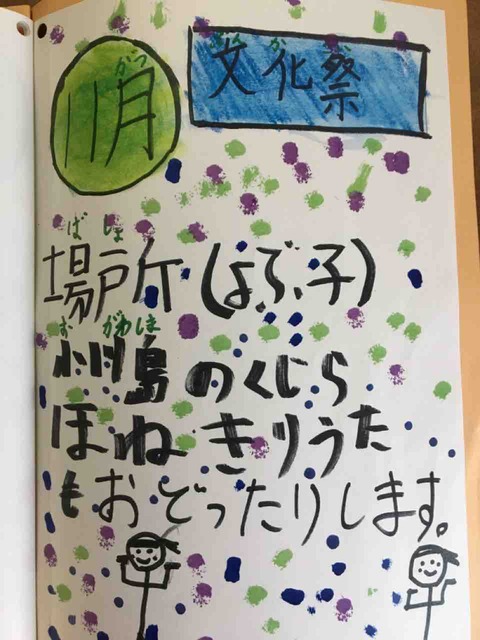 11月
がつ
文化祭
ぶん か さい
場所(よぶ子)
ば しょ
小川島のくじら
お がわ しま
ほねきりうた
もおどったりします。